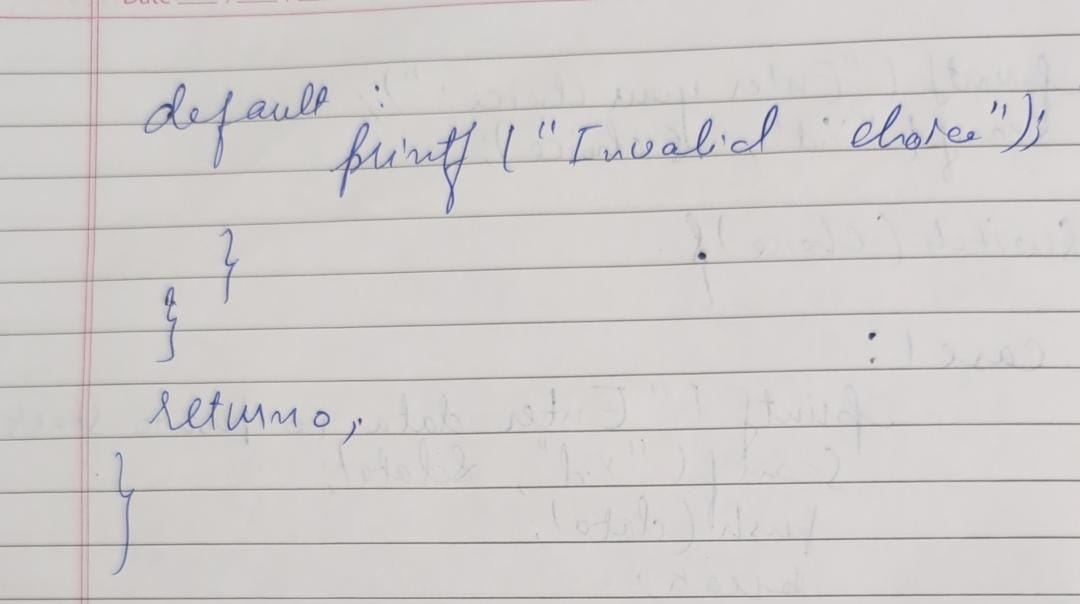 Date
default :
printf ("Invalid choice");
}
}
return 0;
}